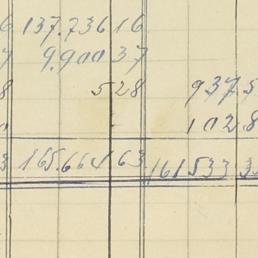 6 137.736 16
7 9.900 37
8 528 937 5
102 8
3 165.664 63 161533 3